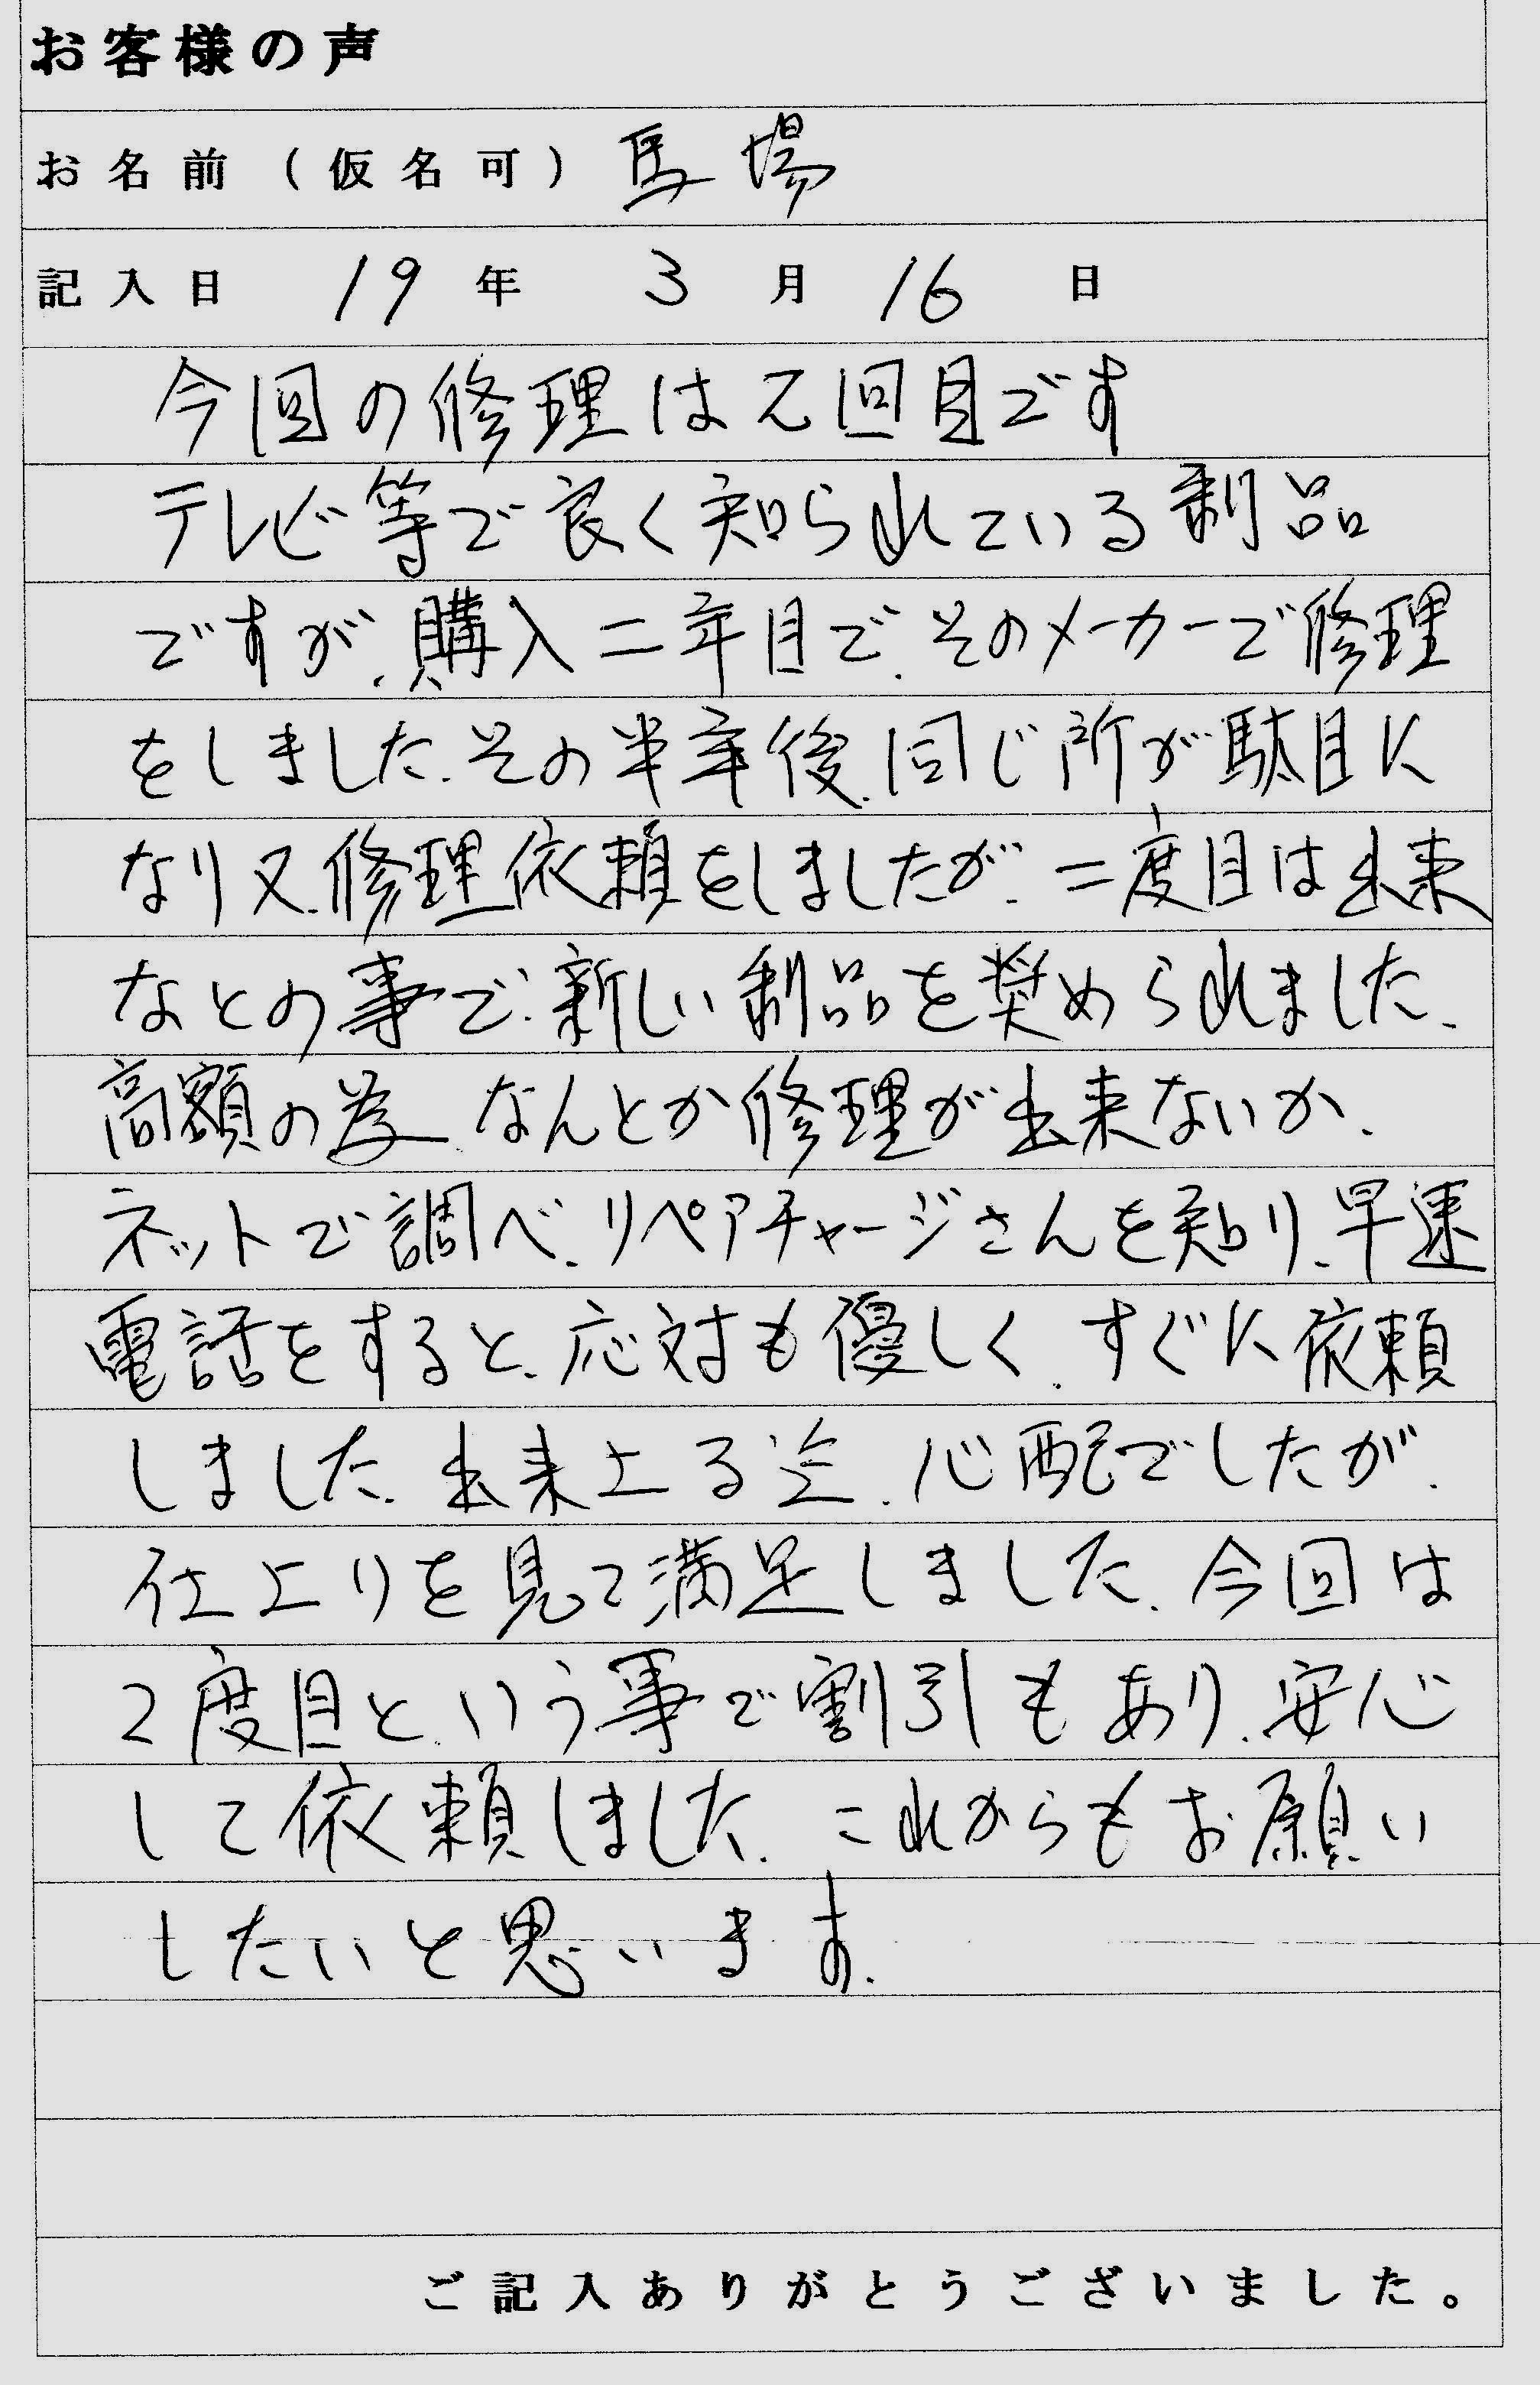 お客様の声
お名前(仮名可) 馬場
記入日 19年 3月16日
今回の修理は2回目です
テレビ等で良く知られている製品
ですが、購入二年目で、そのメーカーで修理
をしました、その半年後、同じ所が駄目に
なり又、修理依頼をしましたが、二度目は出来
なとの事で、新しい製品を奨められました、
高額の為、なんとか修理が出来ないか、
ネットで調べ、リペアチャージさんを知り、早速
電話をすると、応対も優しく、すぐに依頼
しました、出来上る迄、心配でしたが、
仕上りを見て満足しました、今回は
2度目という事で割引もあり、安心
して依頼しました、これからもお願い
したいと思います、
ご記入ありがとうございました。